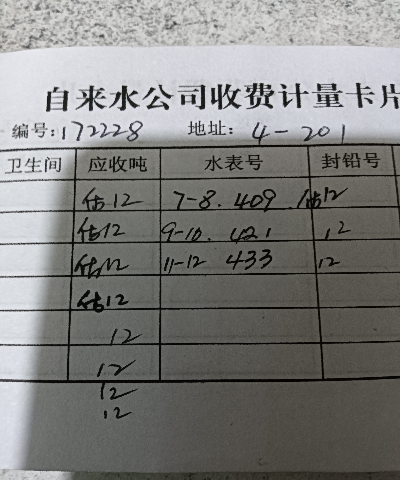 自来水公司收费计量卡片
编号:172228 地址: 4-201
卫生间 应收吨 水表号 封铅号
估12 7-8. 409 估12
估12 9-10. 421 12
估12 11-12 433 12
估12
12
12
12
12